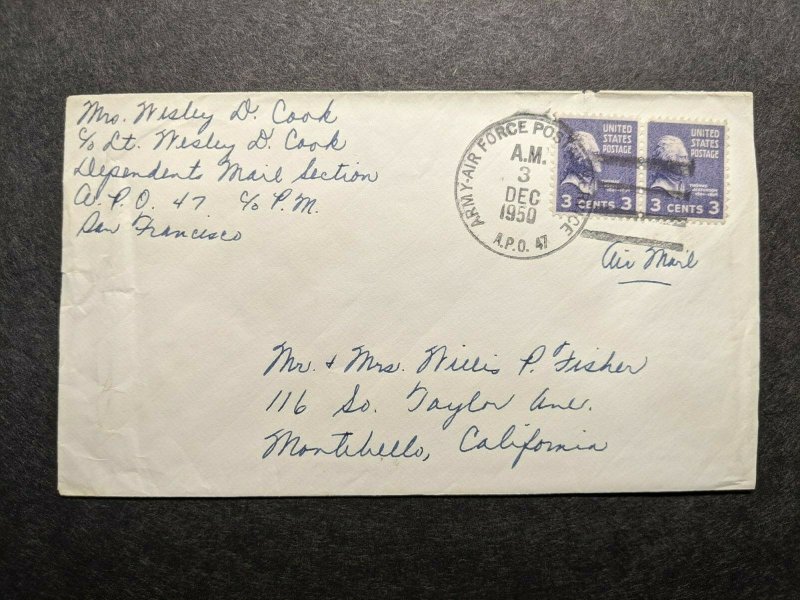 Mrs. Wesley D. Cook
c/o Lt. Wesley D. Cook
Dependents Mail Section
A.P.O. 47 c/o P.M.
San Francisco
ARMY-AIR FORCE POSTAL SERVICE
A.M.
3
DEC
1950
A.P.O. 47
UNITED
STATES
POSTAGE
3 CENTS 3
UNITED
STATES
POSTAGE
3 CENTS 3
Air Mail
Mr. + Mrs. Willis P. Fisher
116 So. Taylor Ave.
Montebello, California